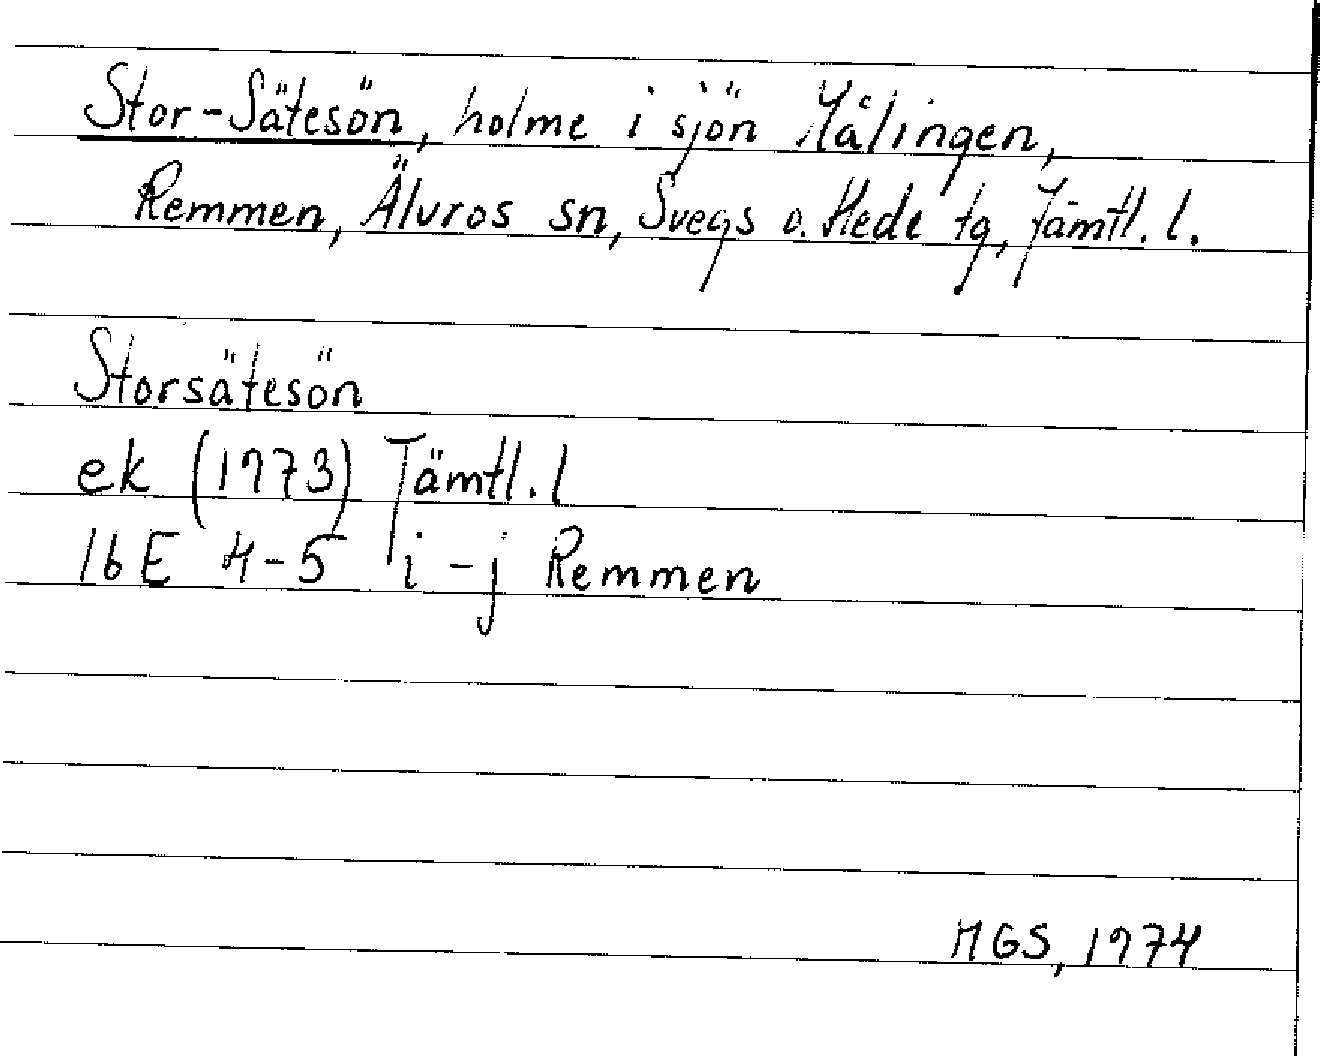 Stor-Sätesön, holme i sjön Hålingen,
Remmen, Älvros sn, Svegs o. Hede tg, Jämtl. l.
Storsätesön
ek (1973) Jämtl. l
16E 4-5 i-j Remmen
MGS, 1974